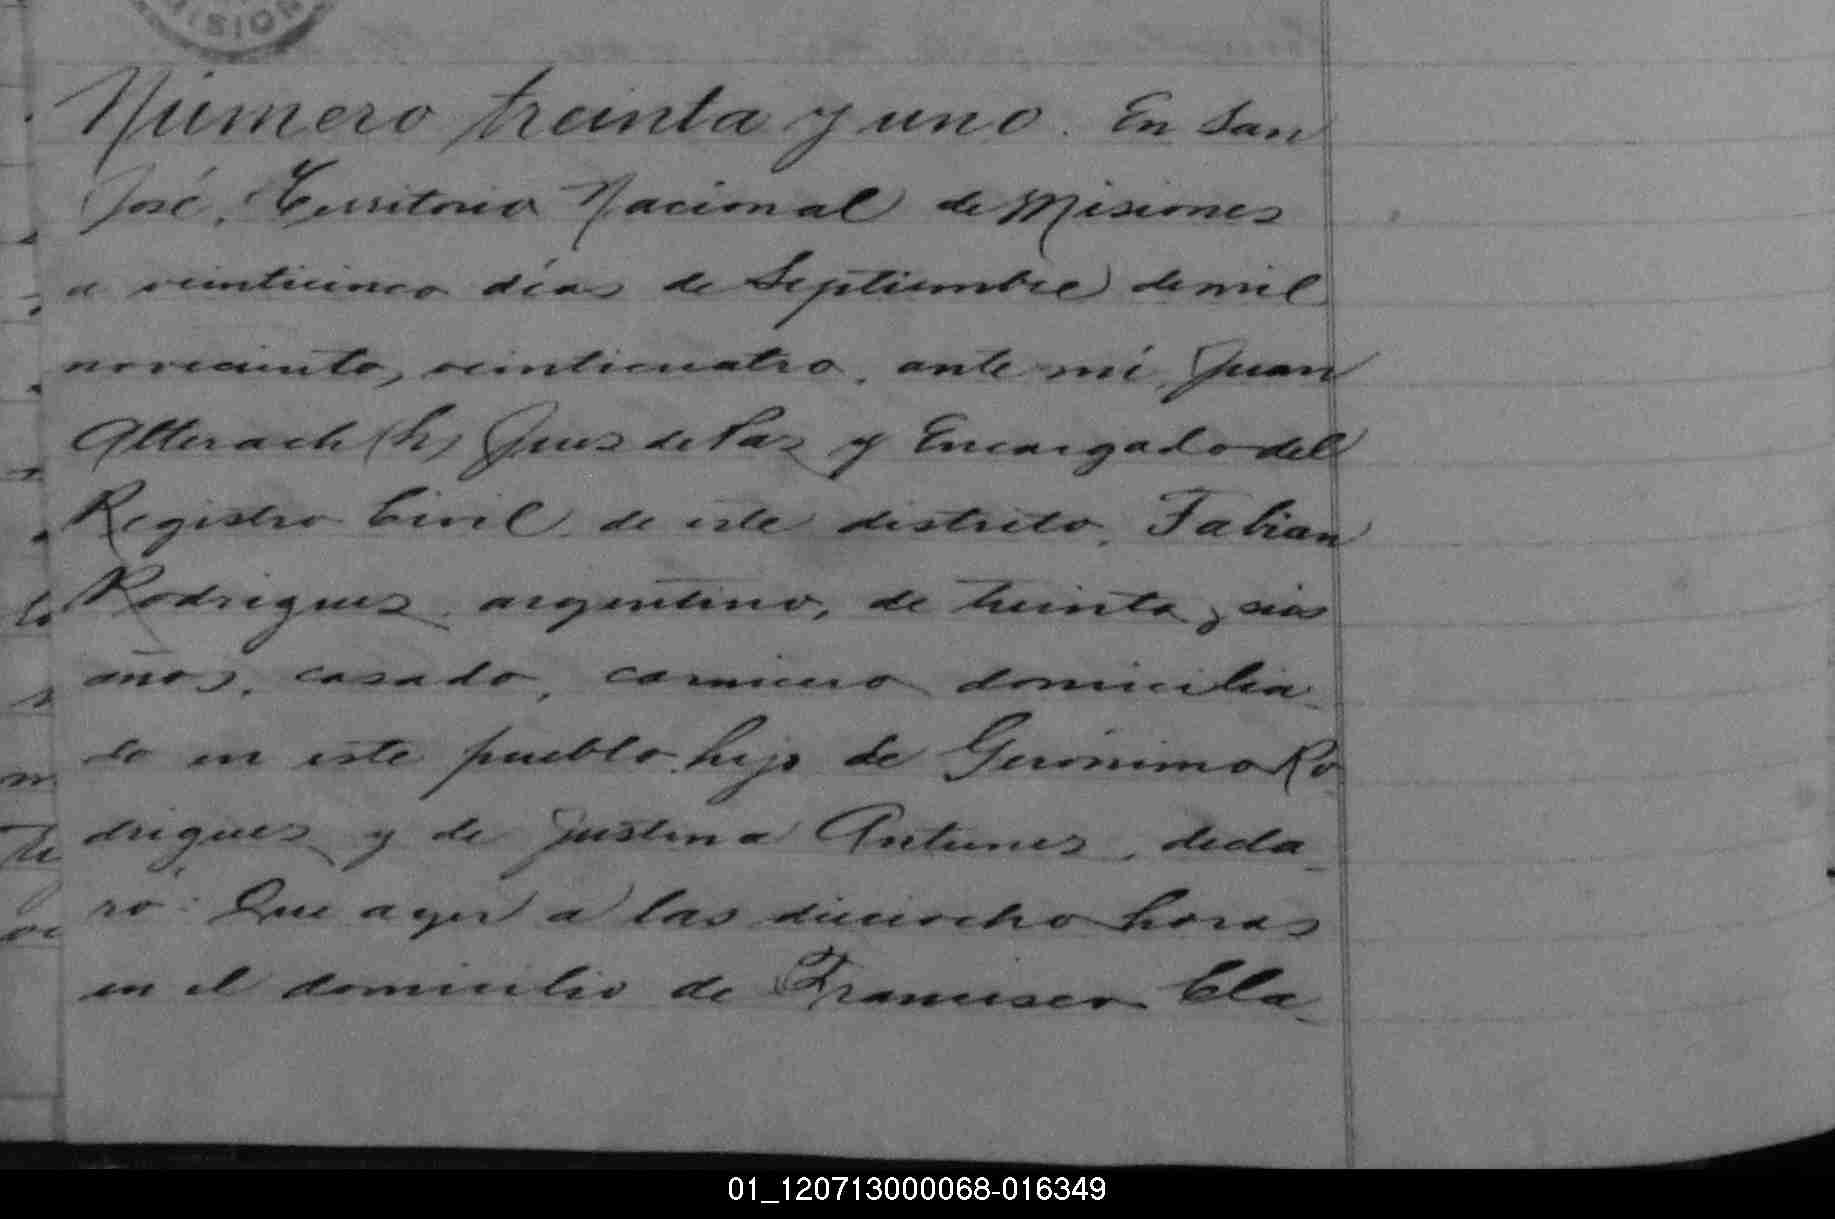 MISION
Número treinta y uno. En San
José, Territorio Nacional de Misiones
a veinticinco días de Septiembre de mil
novecientos veinticuatro, ante mí Juan
Alterach (h) Juez de Paz y Encargado del
Registro Civil de este distrito, Fabian
Rodriguez, argentino, de treinta y seis
años, casado, carnicero domicilia-
do en este pueblo, hijo de Gerónimo Ro-
driguez y de Justina Antunez, decla-
ró: Que ayer a las dieciocho horas
en el domicilio de Francisco Ela-
01_120713000068-016349